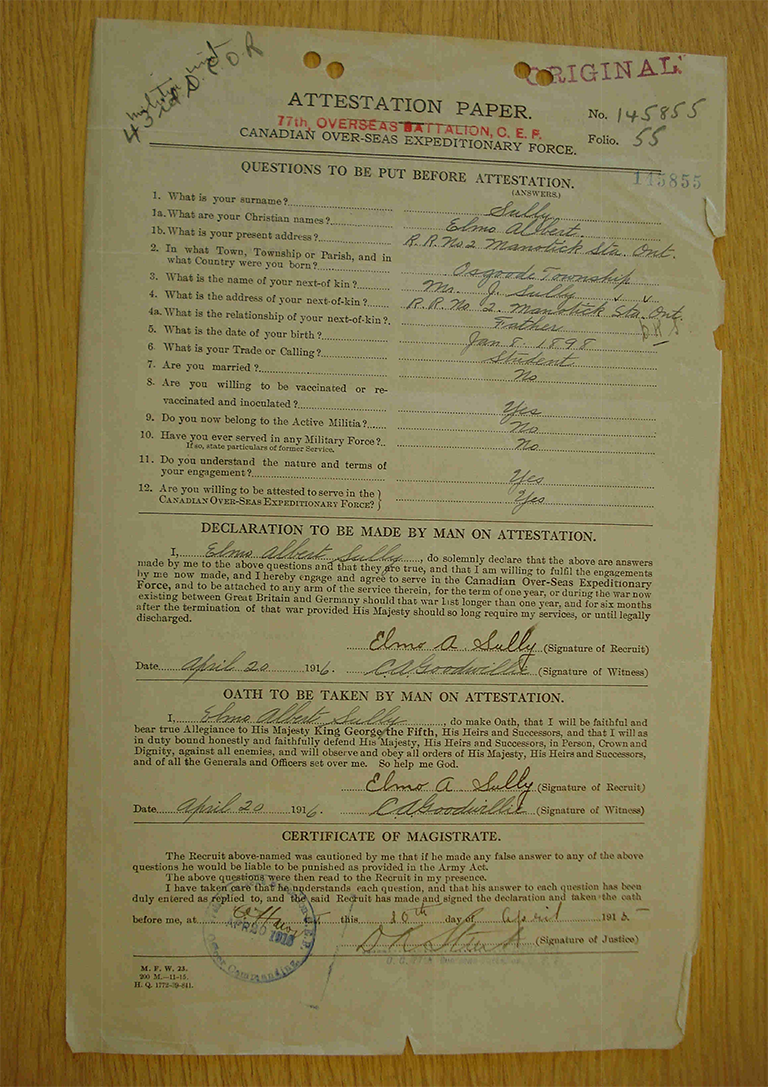 43rd D.C.O.R
ORIGINAL
ATTESTATION PAPER.
No. 145855
Folio. 55
77th, OVERSEAS BATTALION, C. E. F.
CANADIAN OVER-SEAS EXPEDITIONARY FORCE.
145855
QUESTIONS TO BE PUT BEFORE ATTESTATION.
(ANSWERS.)
1. What is your surname? Sully
1a. What are your Christian names? Elmo Albert
1b. What is your present address? R.R. No 2 Manotick Sta. Ont.
2. In what Town, Township or Parish, and in
what Country were you born? Osgoode Township
3. What is the name of your next of kin? Mr. J. Sully
4. What is the address of your next-of-kin? R.R. No 2. Manotick Sta. Ont.
4a. What is the relationship of your next-of-kin? Father
5. What is the date of your birth? Jan 8. 1898
6. What is your Trade or Calling? Student
7. Are you married? No
8. Are you willing to be vaccinated or re-
vaccinated and inoculated? Yes
9. Do you now belong to the Active Militia? No
10. Have you ever served in any Military Force? No
If so, state particulars of former Service.
11. Do you understand the nature and terms of
your engagement? Yes
12. Are you willing to be attested to serve in the
CANADIAN OVER-SEAS EXPEDITIONARY FORCE? Yes
DECLARATION TO BE MADE BY MAN ON ATTESTATION.
I, Elmo Albert Sully, do solemnly declare that the above are answers
made by me to the above questions and that they are true, and that I am willing to fulfil the engagements
by me now made, and I hereby engage and agree to serve in the Canadian Over-Seas Expeditionary
Force, and to be attached to any arm of the service therein, for the term of one year, or during the war now
existing between Great Britain and Germany should that war last longer than one year, and for six months
after the termination of that war provided His Majesty should so long require my services, or until legally
discharged.
Elmo A. Sully (Signature of Recruit)
Date April 20 1916. C A Goodwillie (Signature of Witness)
OATH TO BE TAKEN BY MAN ON ATTESTATION.
I, Elmo Albert Sully, do make Oath, that I will be faithful and
bear true Allegiance to His Majesty King George the Fifth, His Heirs and Successors, and that I will as
in duty bound honestly and faithfully defend His Majesty, His Heirs and Successors, in Person, Crown and
Dignity, against all enemies, and will observe and obey all orders of His Majesty, His Heirs and Successors,
and of all the Generals and Officers set over me. So help me God.
Elmo A Sully (Signature of Recruit)
Date April 20 1916. C A Goodwillie (Signature of Witness)
CERTIFICATE OF MAGISTRATE.
The Recruit above-named was cautioned by me that if he made any false answer to any of the above
questions he would be liable to be punished as provided in the Army Act.
The above questions were then read to the Recruit in my presence.
I have taken care that he understands each question, and that his answer to each question has been
duly entered as replied to, and the said Recruit has made and signed the declaration and taken the oath
before me, at Ottawa this day of April 191
(Signature of Justice)
M. F. W. 23.
200 M.—11-15.
H. Q. 1772-39-841.